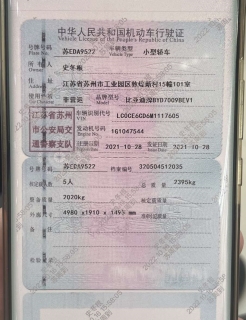 中华人民共和国机动车行驶证
Vehicle License of the People's Republic of China
号牌号码 苏EDA9522 车辆类型 小型轿车
Plate No. Vehicle Type
所有人 史冬
Owner
住址 江苏省苏州市工业园区敦煌新村15幢101室
使用性质 非营运 品牌型号 比亚迪牌BYD7009BEV1
江苏省苏州
市公安局交
通警察支队
车辆识别代号 LC0CE6CD6M1117605
发动机号码 161047544
注册日期 2021-10-28 发证日期 2021-10-28
号牌号码 苏EDA9522 档案编号 320504512035
核定载人数 5人 总质量 2395kg
整备质量 2020kg 核定载质量
外廓尺寸 4980×1910×1495mm